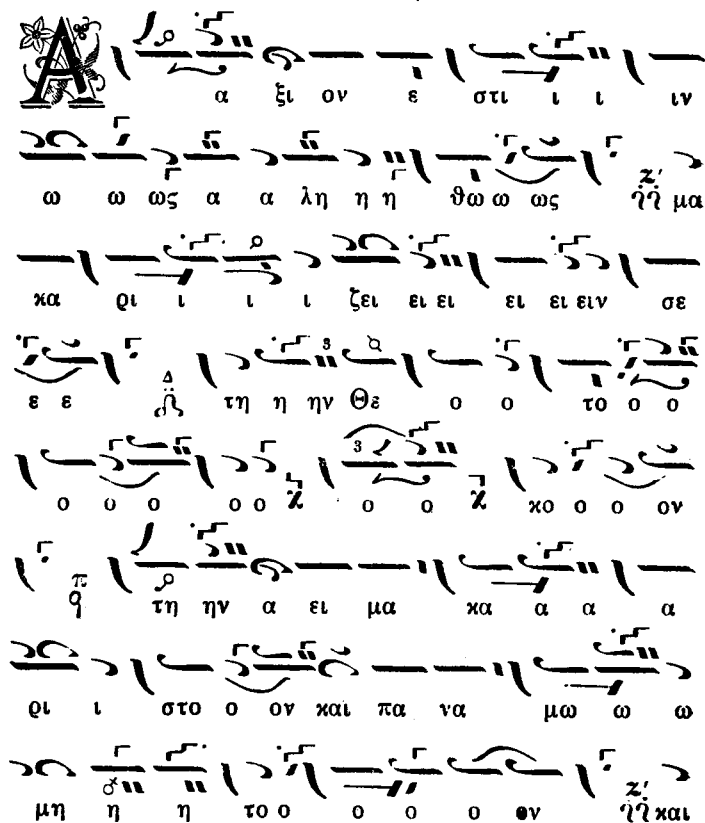 Α α ξι ον ε στι ι ι ιν
ω ω ως α α λη η η θω ω ως μα
κα ρι ι ι ι ζει ει ει ει ει ειν σε
ε ε τη η ην Θε ο ο το ο ο
ο ο ο ο ο ο ο κο ο ο ον
τη ην α ει μα κα α α α
ρι ι στο ο ον και πα να μω ω ω
μη η η το ο ο ο ο ον και